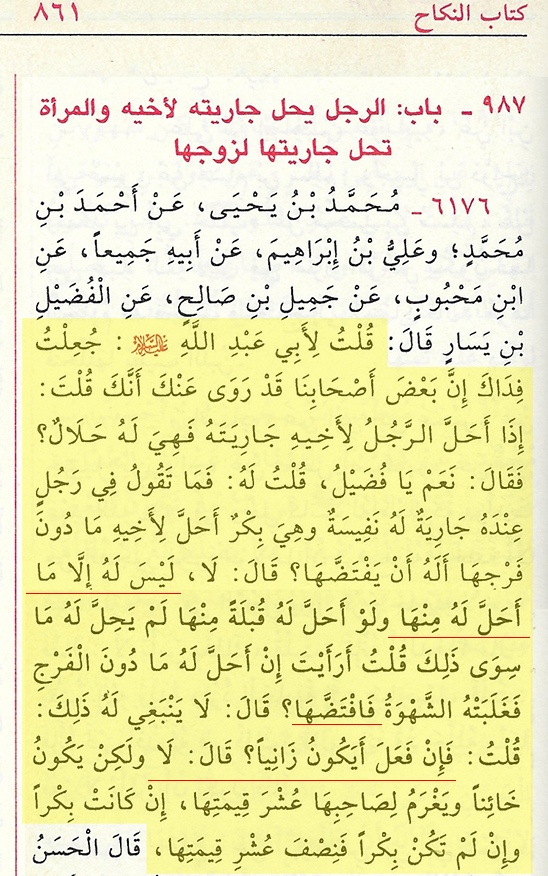 كتاب النكاح ٨٦١
٩٨٧ ـ باب: الرجل يحل جاريته لأخيه والمرأة
تحل جاريتها لزوجها
٦١٧٦ ـ مُحَمَّدُ بْنُ يَحْيَى، عَنْ أَحْمَدَ بْنِ
مُحَمَّدٍ؛ وعَلِيُّ بْنُ إِبْرَاهِيمَ، عَنْ أَبِيهِ جَمِيعاً، عَنِ
ابْنِ مَحْبُوبٍ، عَنْ جَمِيلِ بْنِ صَالِحٍ، عَنِ الْفُضَيْلِ
بْنِ يَسَارٍ قَالَ: قُلْتُ لِأَبِي عَبْدِ اللَّهِ عليه السلام: جُعِلْتُ
فِدَاكَ إِنَّ بَعْضَ أَصْحَابِنَا قَدْ رَوَى عَنْكَ أَنَّكَ قُلْتَ:
إِذَا أَحَلَّ الرَّجُلُ لِأَخِيهِ جَارِيَتَهُ فَهِيَ لَهُ حَلَالٌ؟
فَقَالَ: نَعَمْ يَا فُضَيْلُ، قُلْتُ لَهُ: فَمَا تَقُولُ فِي رَجُلٍ
عِنْدَهُ جَارِيَةٌ لَهُ نَفِيسَةٌ وهِيَ بِكْرٌ أَحَلَّ لِأَخِيهِ مَا دُونَ
فَرْجِهَا أَلَهُ أَنْ يَفْتَضَّهَا؟ قَالَ: لَا، لَيْسَ لَهُ إِلَّا مَا
أَحَلَّ لَهُ مِنْهَا ولَوْ أَحَلَّ لَهُ قُبْلَةً مِنْهَا لَمْ يَحِلَّ لَهُ مَا
سِوَى ذَلِكَ قُلْتُ أَرَأَيْتَ إِنْ أَحَلَّ لَهُ مَا دُونَ الْفَرْجِ
فَغَلَبَتْهُ الشَّهْوَةُ فَافْتَضَّهَا؟ قَالَ: لَا يَنْبَغِي لَهُ ذَلِكَ:
قُلْتُ: فَإِنْ فَعَلَ أَيَكُونُ زَانِياً؟ قَالَ: لَا ولَكِنْ يَكُونُ
خَائِناً ويَغْرَمُ لِصَاحِبِهَا عُشْرَ قِيمَتِهَا، إِنْ كَانَتْ بِكْراً
وإِنْ لَمْ تَكُنْ بِكْراً فَنِصْفَ عُشْرِ قِيمَتِهَا، قَالَ الْحَسَنُ